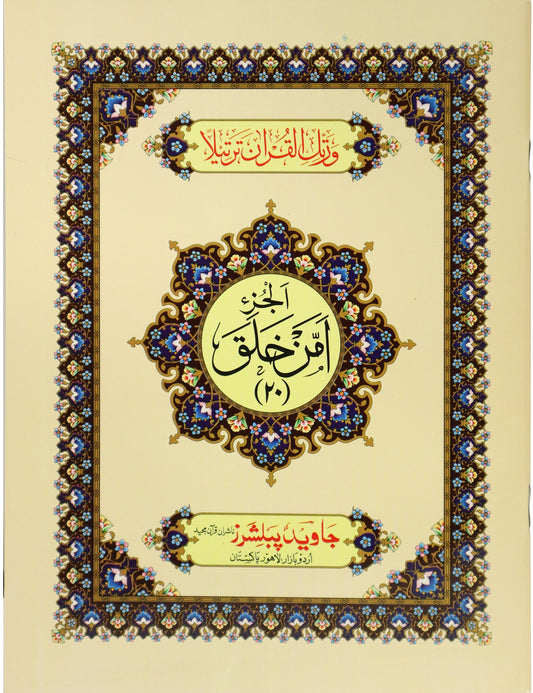 وَرَتِّلِ الْقُرْاٰنَ تَرْتِيْلًا
اَلْجُزْءُ
اَمَّنْ خَلَقَ
(۲۰)
جاوید پبلشرز ناشران قرآن مجید
اردو بازار لاهور پاکستان